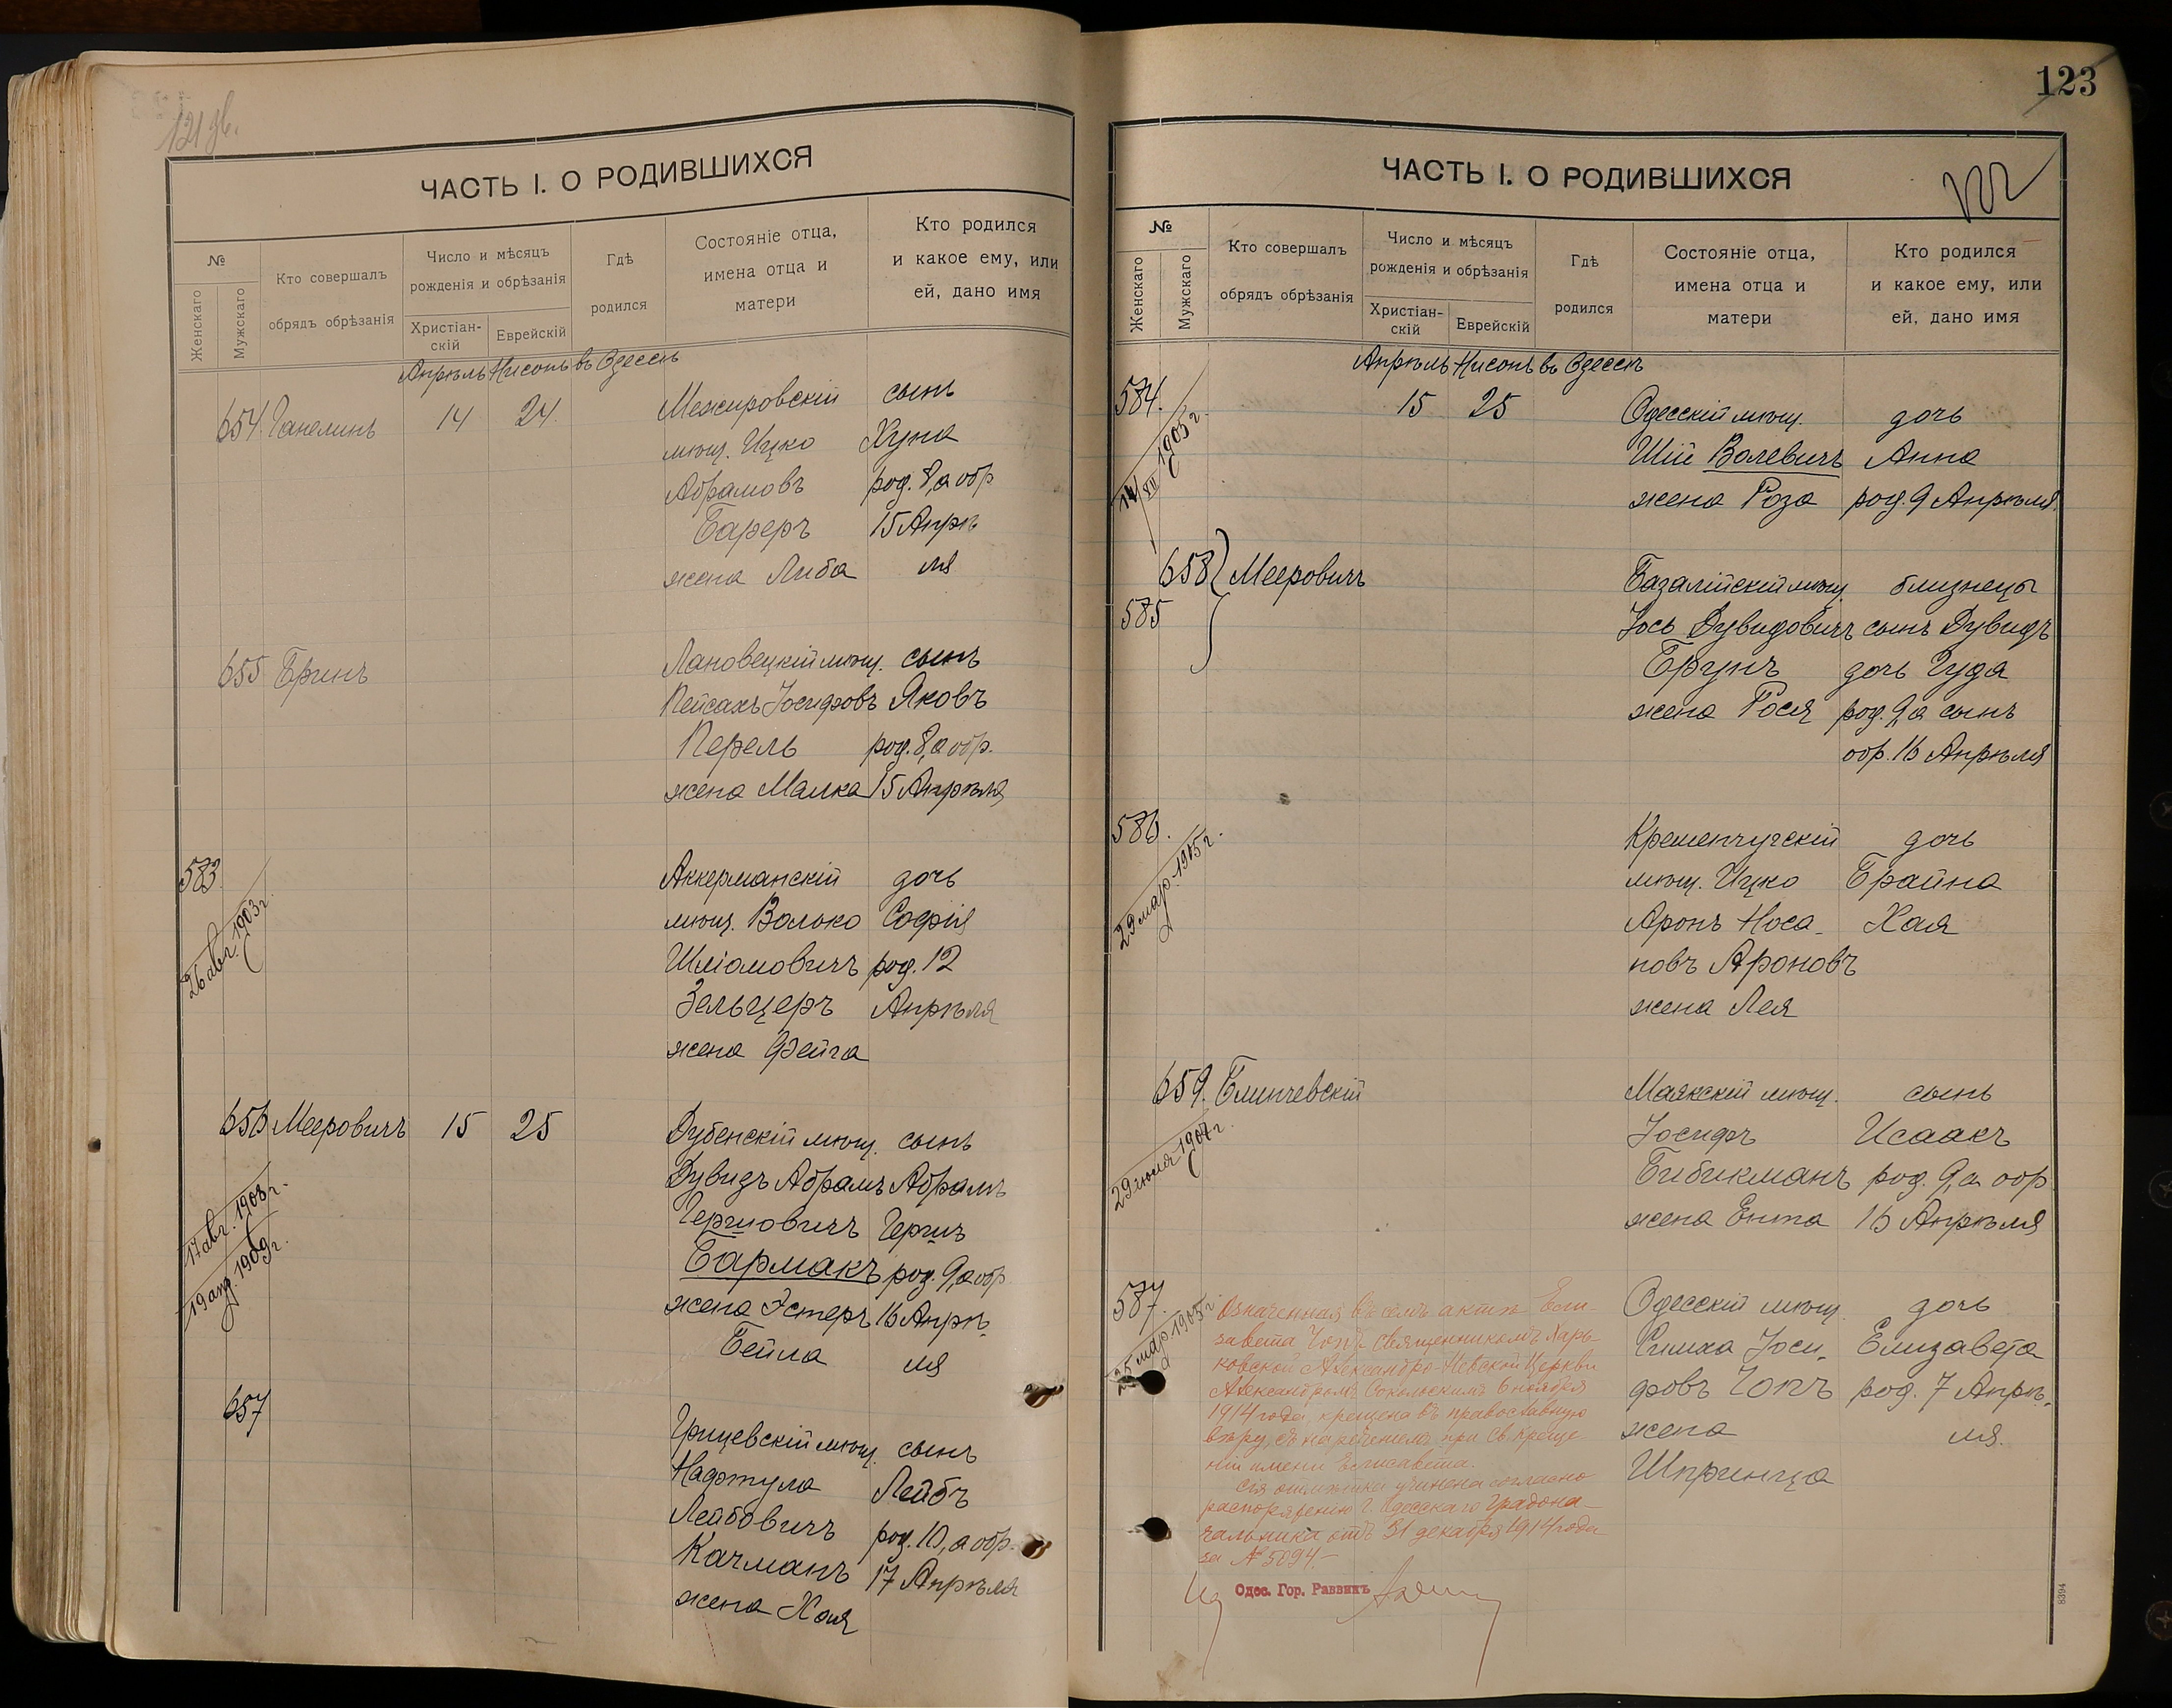 121 об.
ЧАСТЬ I. О РОДИВШИХСЯ
№
Женскаго
Мужскаго
Кто совершалъ
обрядъ обрѣзанія
Число и мѣсяцъ
рожденія и обрѣзанія
Христіан-
скій
Еврейскій
Гдѣ
родился
Состояніе отца,
имена отца и
матери
Кто родился
и какое ему, или
ей, дано имя
Апрѣль Нисонъ въ Одессѣ
654. Ганелинъ 14 24 Межировскій сынъ
мѣщ. Ицко Хуна
Абрамовъ род. 8, а обр
Бареръ 15 Апрѣ
жена Либа ля
655 Бринъ Лановецкій мѣщ. сынъ
Пейсахъ Іосифовъ Яковъ
Перель род. 8, а обр.
жена Малка 15 Апрѣля
583. Аккерманскій дочь
мѣщ. Волько Софія
Шліомовичъ род. 12
Зельцеръ Апрѣля
жена Фейга
26 авг. 1903 г.
656 Мееровичъ 15 25 Дубенскій мѣщ. сынъ
Дувидъ Абрамъ Абрамъ
Гершовичъ Гершъ
Бармакъ род. 9, а обр
жена Эстеръ 16 Апрѣ-
Бейла ля
17 авг. 1908 г.
1909 г.
657 Грицевскій мѣщ. сынъ
Нафтула Лейбъ
Лейбовичъ род. 10, а обр.
Качманъ 17 Апрѣля
жена Хая
123
122
ЧАСТЬ I. О РОДИВШИХСЯ
№
Женскаго
Мужскаго
Кто совершалъ
обрядъ обрѣзанія
Число и мѣсяцъ
рожденія и обрѣзанія
Христіан-
скій
Еврейскій
Гдѣ
родился
Состояніе отца,
имена отца и
матери
Кто родился
и какое ему, или
ей, дано имя
Апрѣль Нисонъ въ Одессѣ
584. 15 25 Одесскій мѣщ. дочь
Шій Волевичъ Анна
жена Роза род. 9 Апрѣля.
VII 1905 г.
658 Мееровичъ Базалійскій мѣщ. близнецы
585 Іось Дувидовичъ сынъ Дувидъ
Брунъ дочь Гуда
жена Рося род. 9, а сынъ
обр. 16 Апрѣля
586. Кременчугскій дочь
мѣщ. Ицко Брайна
Аронъ Носа- Хая
новъ Ароновъ
жена Лея
29 мар. 1905 г.
659. Блинчевскій Маякскій мѣщ. сынъ
Іосифъ Исаакъ
Бибикманъ род. 9, а обр
жена Ента 16 Апрѣля
29 іюля
587. Одесскій мѣщ. дочь
Симха Іоси- Елизавета
фовъ Гопъ род. 7 Апрѣ-
жена ля.
Шпринца
25 мар. 1905 г.
Означенная въ семъ актѣ Ели-
завета Гопъ священникомъ Харь-
ковской Александро-Невской Церкви
Александромъ Сокольскимъ 6 ноября
1914 года, крещена въ православную
вѣру, съ нареченіемъ при Св. Креще-
ніи имени Елисавета.
Сія отмѣтка учинена согласно
распоряженію Г. Одесскаго Градона-
чальника отъ 31 декабря 1914 года
за № 5094.
Одес. Гор. Раввинъ
8394